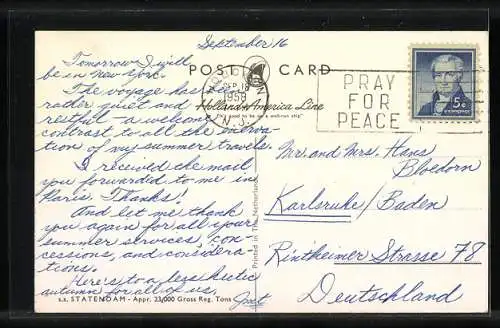 September 16
POST CARD
Holland-America Line
"It's good to be on a well-run ship"
Tomorrow I will
be in New York.
The voyage has been
rather quiet and
restful - a welcome
contrast to all the
of my summer travels.
I received the mail
you forwarded to me in
Paris. Thanks!
And let me thank
you again for all your
summer services, con-
cessions, and considera-
tions.
Here's to a less hectic
autumn for all of us.
s.s. STATENDAM - Appr. 23,000 Gross Reg. Tons
Printed in The Netherlands
SEP 18
1958
N.J.
PRAY
FOR
PEACE
5c
Mr. and Mrs. Hans
Bloedorn
Karlsruhe/Baden
Rintheimer Strasse 78
Deutschland